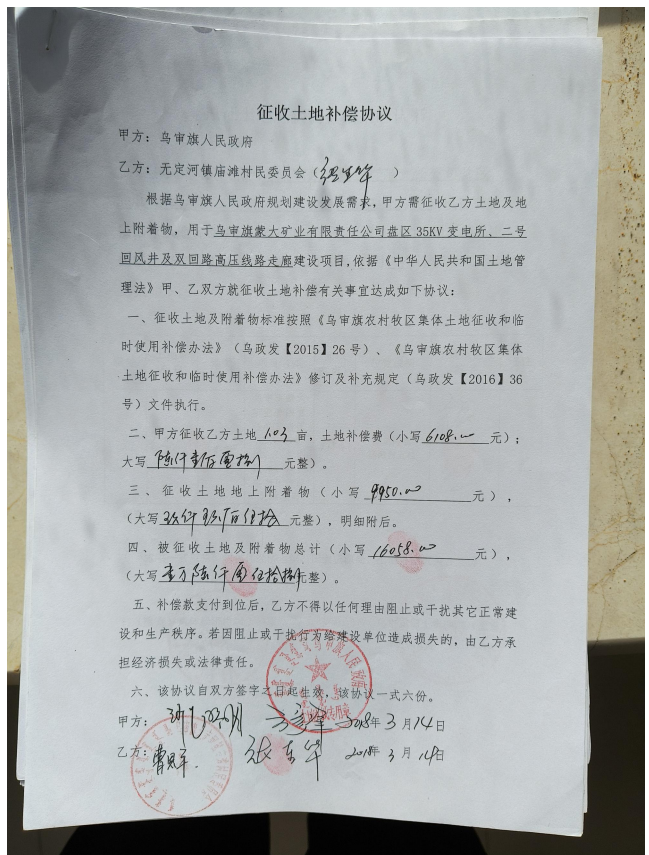 征收土地补偿协议
甲方：乌审旗人民政府
乙方：无定河镇庙滩村民委员会（ ）
根据乌审旗人民政府规划建设发展需求，甲方需征收乙方土地及地
上附着物，用于乌审旗蒙大矿业有限责任公司盘区35KV变电所、二号
回风井及双回路高压线路走廊建设项目，依据《中华人民共和国土地管
理法》甲、乙双方就征收土地补偿有关事宜达成如下协议：
一、征收土地及附着物标准按照《乌审旗农村牧区集体土地征收和临
时使用补偿办法》（乌政发【2015】26号）、《乌审旗农村牧区集体
土地征收和临时使用补偿办法》修订及补充规定（乌政发【2016】36
号）文件执行。
二、甲方征收乙方土地1.03亩，土地补偿费（小写6108.00元）；
大写陆仟壹佰零捌元整）。
三、征收土地地上附着物（小写9950.00元），
（大写玖仟玖佰伍拾元整），明细附后。
四、被征收土地及附着物总计（小写16058.00元），
（大写壹万陆仟零伍拾捌元整）。
五、补偿款支付到位后，乙方不得以任何理由阻止或干扰其它正常建
设和生产秩序。若因阻止或干扰行为给建设单位造成损失的，由乙方承
担经济损失或法律责任。
六、该协议自双方签字之日起生效，该协议一式六份。
甲方： 2018年3月14日
乙方： 2018年3月14日